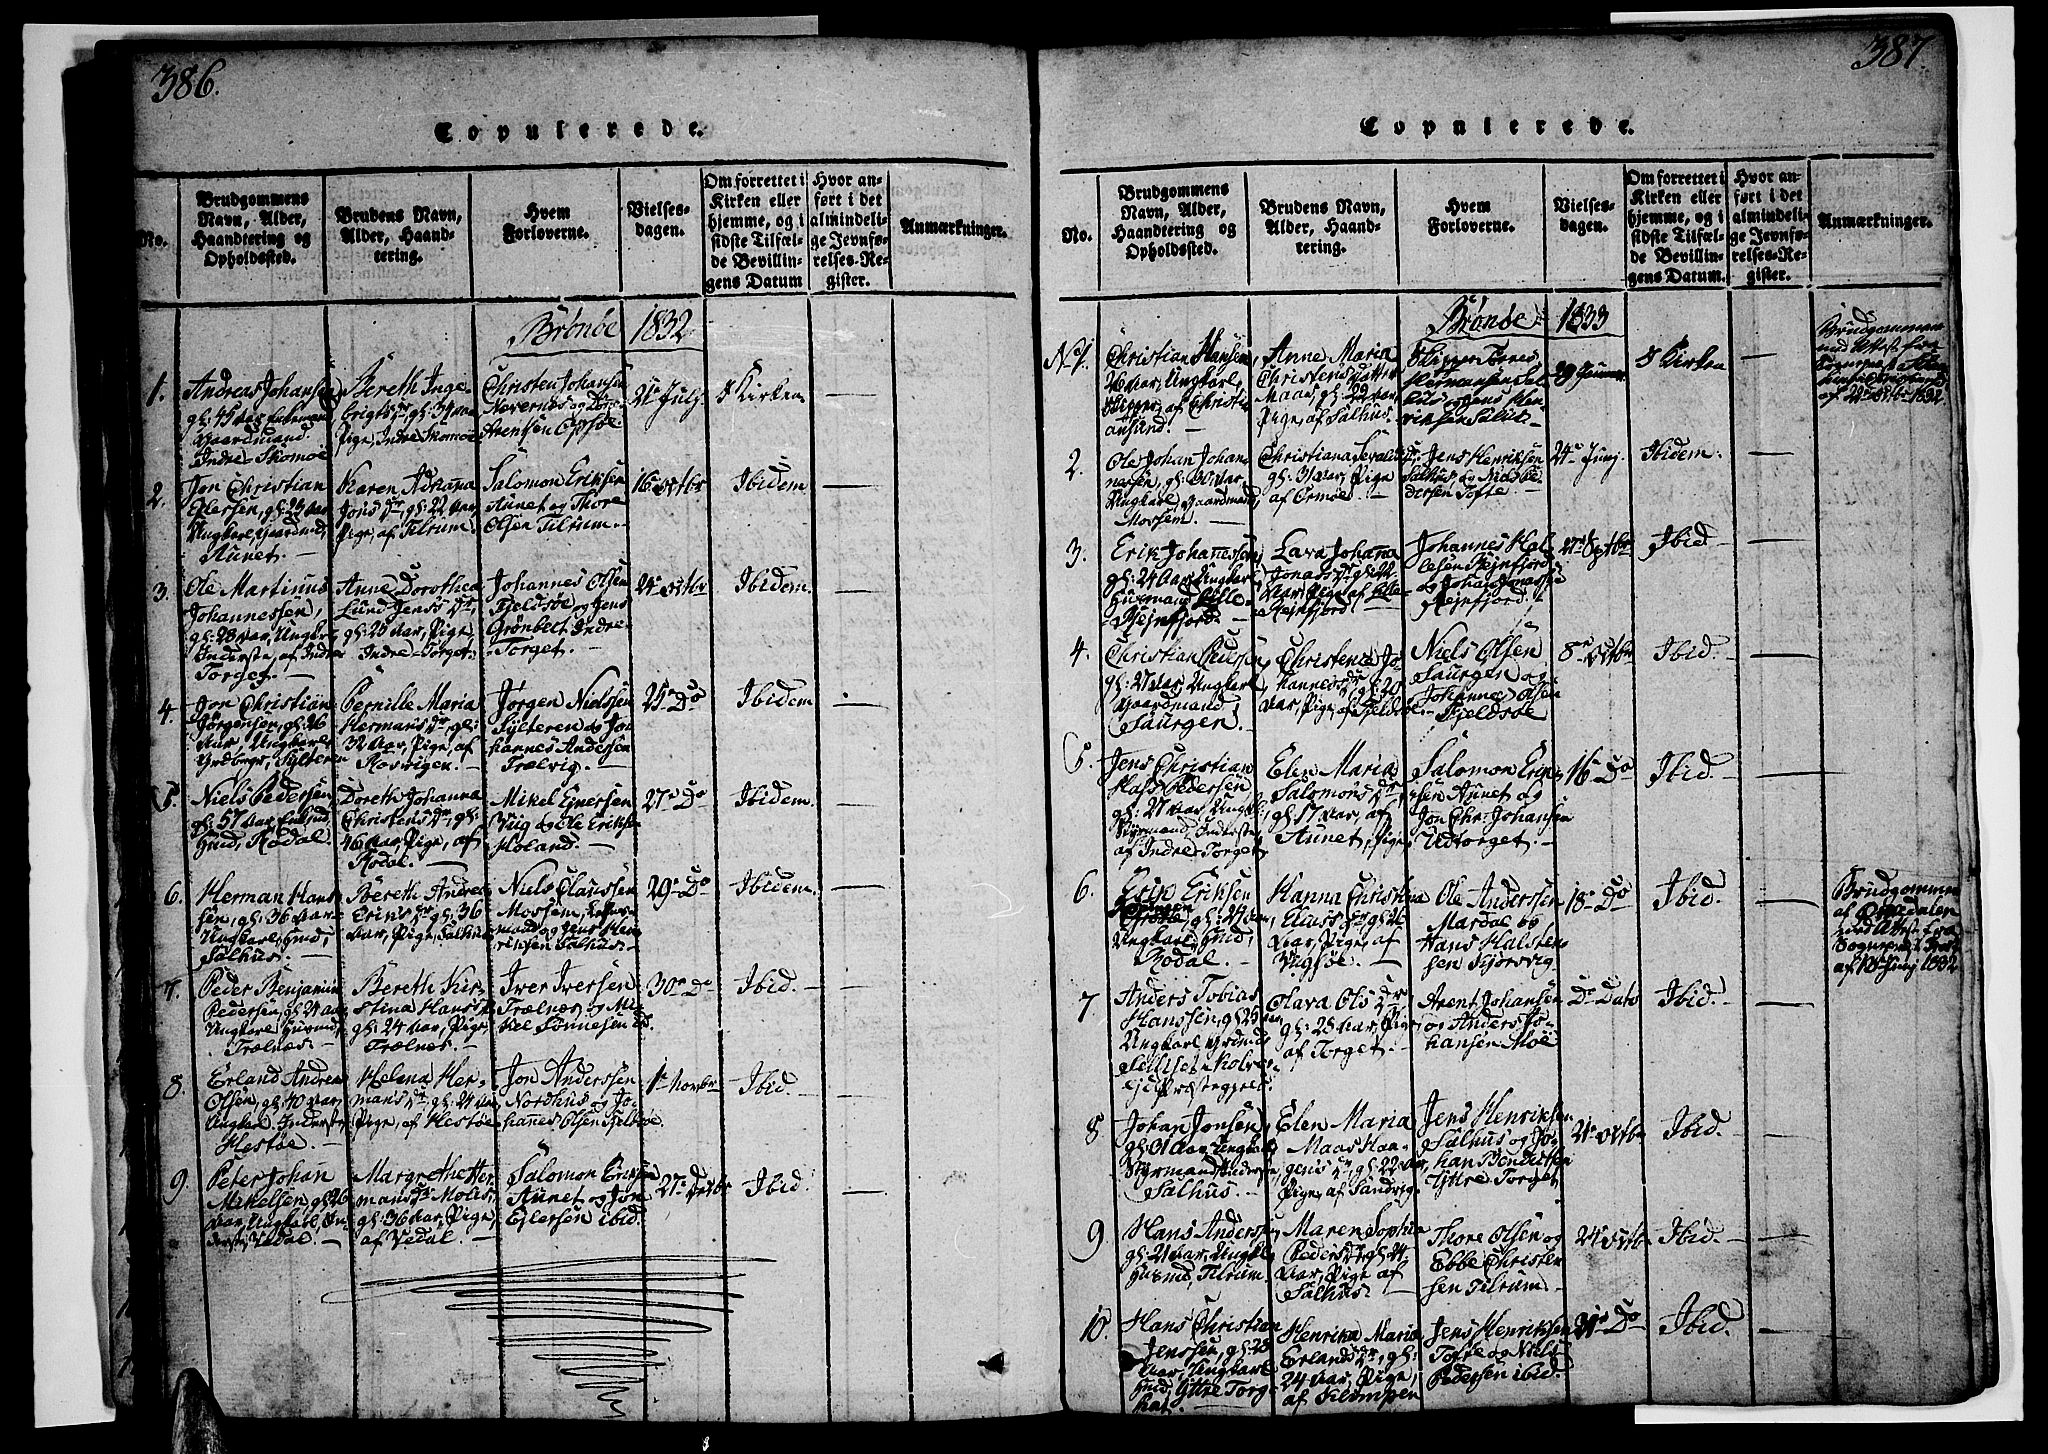 386.
Copulerede.
No.
Brudgommens
Navn, Alder,
Haandtering og
Opholdssted.
Brudens Navn,
Alder, Haand-
tering.
Hvem
Forloverne.
Vielses-
dagen.
Om forrettet i
Kirken eller
hjemme, og i
sidste Tilfæl-
de Bevillin-
gens Datum
Hvor an-
ført i det
almindeli-
ge Jevnfø-
relses-Re-
gister.
Anmærkninger.
Brönöe 1832
1.
Andreas Johansen
gl: 45 Aar
Gaardmand.
Indre-Skomoe
Bereth Inge-
brigts Dr, gl: 31 Aar
Pige, Indre Skomoe
Christen Johansen
Arentsen Opsöe.
21 July
I Kirken
2.
Jon Christian
Ejlersen, gl: 23 Aar
Ungkarl, Gaardmd,
Aunet.
Karen Adriana
Jons Dr, gl: 22 Aar,
Pige, af Tilrum.
Salomon Eriksen
Aunet og Thore
Olsen Tilrum.
16 Octbr
Ibidem
3.
Ole Martinus
Johannessen,
gl: 28 Aar, Ungkr
Inderste, af Indre-
Torget.
Anne Dorothea
Lund Jens Dr,
gl: 25 Aar, Pige,
Indre-Torget.
Johannes Olsen
Fjeldsöe og Jens
Grönbech Indre-
Torget.
24 Octbr
Ibidem.
4.
Jon Christian
Jörgensen, gl: 26
Aar, Ungkarl
Sylteren
Pernille Maria
Hermans Dr, gl:
32 Aar, Pige, af
Jörgen Nielssen
Sylteren og Jo-
hannes Andersen
Trælvig.
25 Do
Ibidem
5.
Niels Pedersen,
gl: 57 Aar
Rodal.
Doreth Johanna
Christens Dr, gl:
46 Aar, Pige, af
Rodal.
Mikel Ejnersen
og Ole Eriksen
Moland.
27 Do
Ibidem.
6.
Herman Hans-
sen, gl: 36 Aar
Ungkarl,
Salhus.
Bereth Andrea
Erics Dr, gl: 36
Aar, Pige, Salhus
Niels Claussen
Mossem,
og Jens Hen-
riksen Salhus.
29 Do
Ibidem.
7.
Peder Benjamin
Pedersen, gl: 21 Aar
Ungkarl Husmd,
Trælnes.
Bereth Kir-
stina Hans Dr
gl: 24 Aar, Pige,
Trælnes.
Iver Iversen
Trælnes, og Mi-
kel Sönnesen ib.
30 Do
Ibid.
8.
Erland Andreas
Olsen, gl: 40 Aar,
Ungkarl Inderst
Hestöe.
Helena Her-
mans Dr, gl: 24 Aar
Pige, af Hestöe
Jon Anderssen
Nordhus og Jo-
hannes Olsen Fjeldsöe.
1 Novbr
Ibid.
9.
Peter Johan
Mikelsen, gl: 26
Aar, Ungkarl, In-
derste, Vedal.
Margrethe Her-
mans Dr Moe
gl: 36 Aar, Pige,
af Vedal.
Salomon Eriksen
Aunet og Jon
Ejlersen ibid.
27 Decbr
Ibid.
387.
Copulerede.
No.
Brudgommens
Navn, Alder,
Haandtering og
Opholdssted.
Brudens Navn,
Alder, Haand-
tering.
Hvem
Forloverne.
Vielses-
dagen.
Om forrettet i
Kirken eller
hjemme, og i
sidste Tilfæl-
de Bevillin-
gens Datum.
Hvor an-
ført i det
almindeli-
ge Jevnfø-
relses-Re-
gister.
Anmærkninger.
Brönöe 1833
No 1.
Christian Hansen
26 Aar, Ungkarl,
Skipper, af Christi-
ansund.
Anne Maria
Christens Datter
Maas, gl: 22 Aar
Pige, af Salhus
Skipper Tönnes
Hermansen Sal-
hus og Jens Hen-
riksen Salhus.
I Kirken
Brudgommen
med Attest fra
af 22 Octbr 1832.
2.
Ole Johan Johan-
nessen, gl: 30 Aar,
Ungkarl, Gaardmand,
Mossem.
gl: 31 Aar, Pige
Jens Henriksen
Salhus, og
Tofte.
24 Junj.
Ibidem.
3.
Erik Johannessen
gl: 24 Aar, Ungkarl
Husmand Lille-
Lava Johana
Jonas Dr, gl: 22
Aar, Pige af Lille-
Johannes Hal-
27 Septbr
Ibid
4.
Christian
gl: 27 Aar, Ungkarl,
Gaardmand,
Saurgen.
Christence Jo-
hannes Dr, gl: 20
Aar, Pige, af Fjeldsöe
Niels Olsen
Saurgen og
Johannes Olsen
Fjeldsöe
8 Octbr
Ibid.
5.
Jens Christian
Hass Pedersen
gl: 27 Aar, Ungkl,
Styrmand, Inderste
af Indre-Torget.
Elen Maria
Salomons Dr,
gl: 17 Aar, af
Aunet, Pige
Salomon Erik-
sen Aunet og
Jon Chr: Johansen
Udtorget.
16 Do
Ibid.
6.
Erik Eriksen
gl: 24 Aar
Ungkarl,
Rodal.
Hanna Christina
gl: 26
Aar, Pige, af
Ole Anderssen
Mardal og
Hans Halsten-
sen
18 Do
Ibid.
Brudgommen
med Attest fra
af 18 Junj 1832
7.
Anders Tobias
Hanssen, gl: 29 Aar
Ungkarl
Præstegjeld.
Olava Ols Dr
gl: 25 Aar, Pige
af Torget.
Arent Johansen
og Anders Jo-
hansen Moe
Do Dato
Ibid.
8
Johan Jonsen,
gl: 31 Aar, Ungkarl
Styrmand, Inderste
Salhus.
Elen Maria
Maas Haa-
gens Dr, gl: 22 Aar,
Pige, af Sandvig
Jens Henriksen
Salhus og Jo-
han Bendixsen
Yttre Torget
21 Octbr
Ibid.
9.
Hans Andersen
gl: 21 Aar, Ungkl
Husmd, Tilrum.
Maren Sophia
Peders Dr, gl: 24
Aar, Pige af
Salhus.
Thore Olsen og
Ebbe Christen-
sen Tilrum.
24 Octbr
Ibid.
10.
Hans Christian
Jenssen, gl: 28
Aar, Ungkarl
Yttre Torg-
Henrika Maria
Erlands Dr, gl:
24 Aar, Pige,
af Klempen
Jens Henriksen
Tofte og Niels
Pedersen ibid.
31 Do
Ibid.